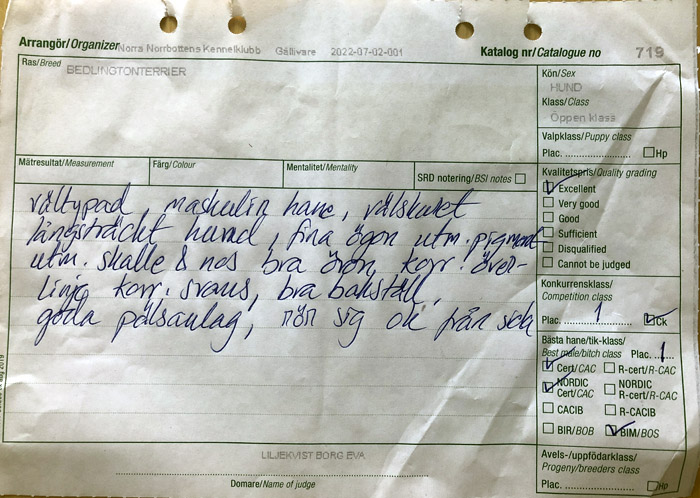 Arrangör/Organizer Norra Norrbottens Kennelklubb Gällivare 2022-07-02-001 Katalog nr/Catalogue no 719
Ras/Breed BEDLINGTONTERRIER
Kön/Sex
HUND
Klass/Class
Öppen klass
Valpklass/Puppy class
Plac. Hp
Mätresultat/Measurement Färg/Colour Mentalitet/Mentality SRD notering/BSI notes
Kvalitetspris/Quality grading
Excellent
Very good
Good
Sufficient
Disqualified
Cannot be judged
vältypad, maskulin hane, välskuret
långsträckt huvud, fina ögon utm. pigment
utm. skalle & nos bra öron, korr. över-
linje korr. svans, bra bakställ,
goda pälsanlag, rör sig ok från sida
Konkurrensklass/
Competition class
Plac. 1 Ck
Bästa hane/tik-klass/
Best male/bitch class Plac. 1
Cert/CAC R-cert/R-CAC
NORDIC Cert/CAC NORDIC R-cert/R-CAC
CACIB R-CACIB
BIR/BOB BIM/BOS
Avels-/uppfödarklass/
Progeny/breeders class
Plac. Hp
LILJEKVIST BORG EVA
Domare/Name of judge